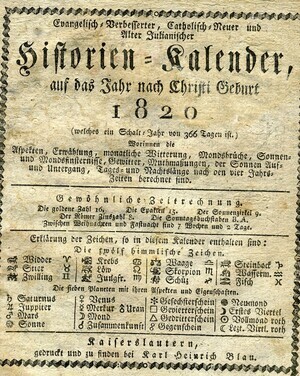 Evangelisch-Verbesserter, Catholisch-Neuer und
Alter Julianischer
Historien-Kalender,
auf das Jahr nach Christi Geburt
1820
(welches ein Schalt-Jahr von 366 Tagen ist,)
Worinnen die
Aspekten, Erwählung, monatliche Witterung, Mondsbrüche, Sonnen-
und Mondsfinsternisse, Gewitter, Muthmaßungen, der Sonnen Auf-
und Untergang, Tages- und Nachtslänge nach den vier Jahrs-
Zeiten berechnet sind.
Gewöhnliche Zeitrechnung.
Die goldene Zahl 16. Die Epakten 15. Der Sonnenzirkel 9.
Der Römer Zinszahl 8. Die Sonntagsbuchstaben B. A.
Zwischen Weihnachten und Fastnacht sind 7 Wochen und 2 Tage.
Erklärung der Zeichen, so in diesem Kalender enthalten sind:
Die zwölf himmlische Zeichen.
Widder Krebs Waage Steinbock
Stier Löw Skorpion Wasserm.
Zwilling Jungfr. Schütz Fisch
Die sieben Planeten mit ihren Aspekten und Eigenschaften.
♄ Saturnus ♀ Venus Gesechsterschein Neumond
♃ Juppiter ☿ Merkur Uran □ Geviertterschein Erstes Viertel
♂ Mars Mond △ Gedritterschein Vollmond roth
Sonne ☌ Zusammenkunft ☍ Gegenschein Lezt. Virtl. roth
Kaiserslautern,
gedruckt und zu finden bei Karl Heinrich Blau.